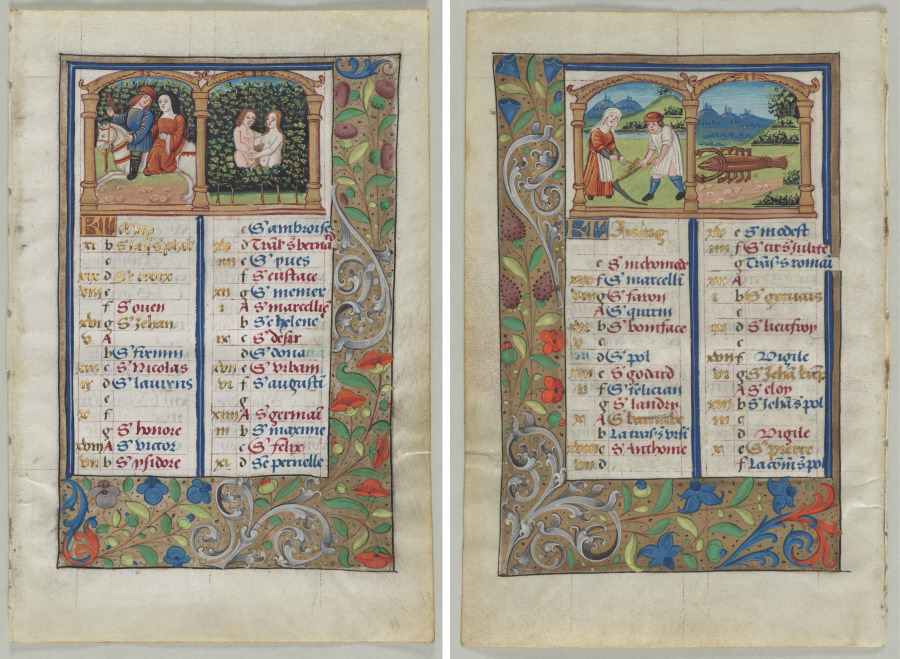 KL May
xi b S. Jaq s. phil
c
xix d Ste croix
viii e
f S ouen
xvi g S Jehan
v A
b S firmin
xiii c S Nicolas
ii d S laurens
e
x f
g S honore
xviii A S victor
vii b S ysidore
c S ambroise
xv d Tras s bernard
iiii e S yues
f S eustace
xii g S memer
i A S marcellin
b Se helene
ix c S desir
d S donacia
xvii e S vrbain
vi f S augustin
g
xiiii A S germain
iii b S maxime
c S felix
xi d Se pernelle
KL Juing
e S nichomede
xix f S marcelli
viii g S faron
A S quirin
xvi b S boniface
v c
d S pol
xiii e S godard
ii f S felician
g S landry
x A S barnabe
b La tras s vrsi
xviii c S Anthome
vii d
e S modest
xv f S cir s iulite
g Tras s romain
xii A
i b S geruais
c
ix d S lieffroy
e
xvii f Vigile
vi g S Jehan bap
A S eloy
xiiii b S Jehan s pol
iii c
d Vigile
xi e S pierre
f La com s pol